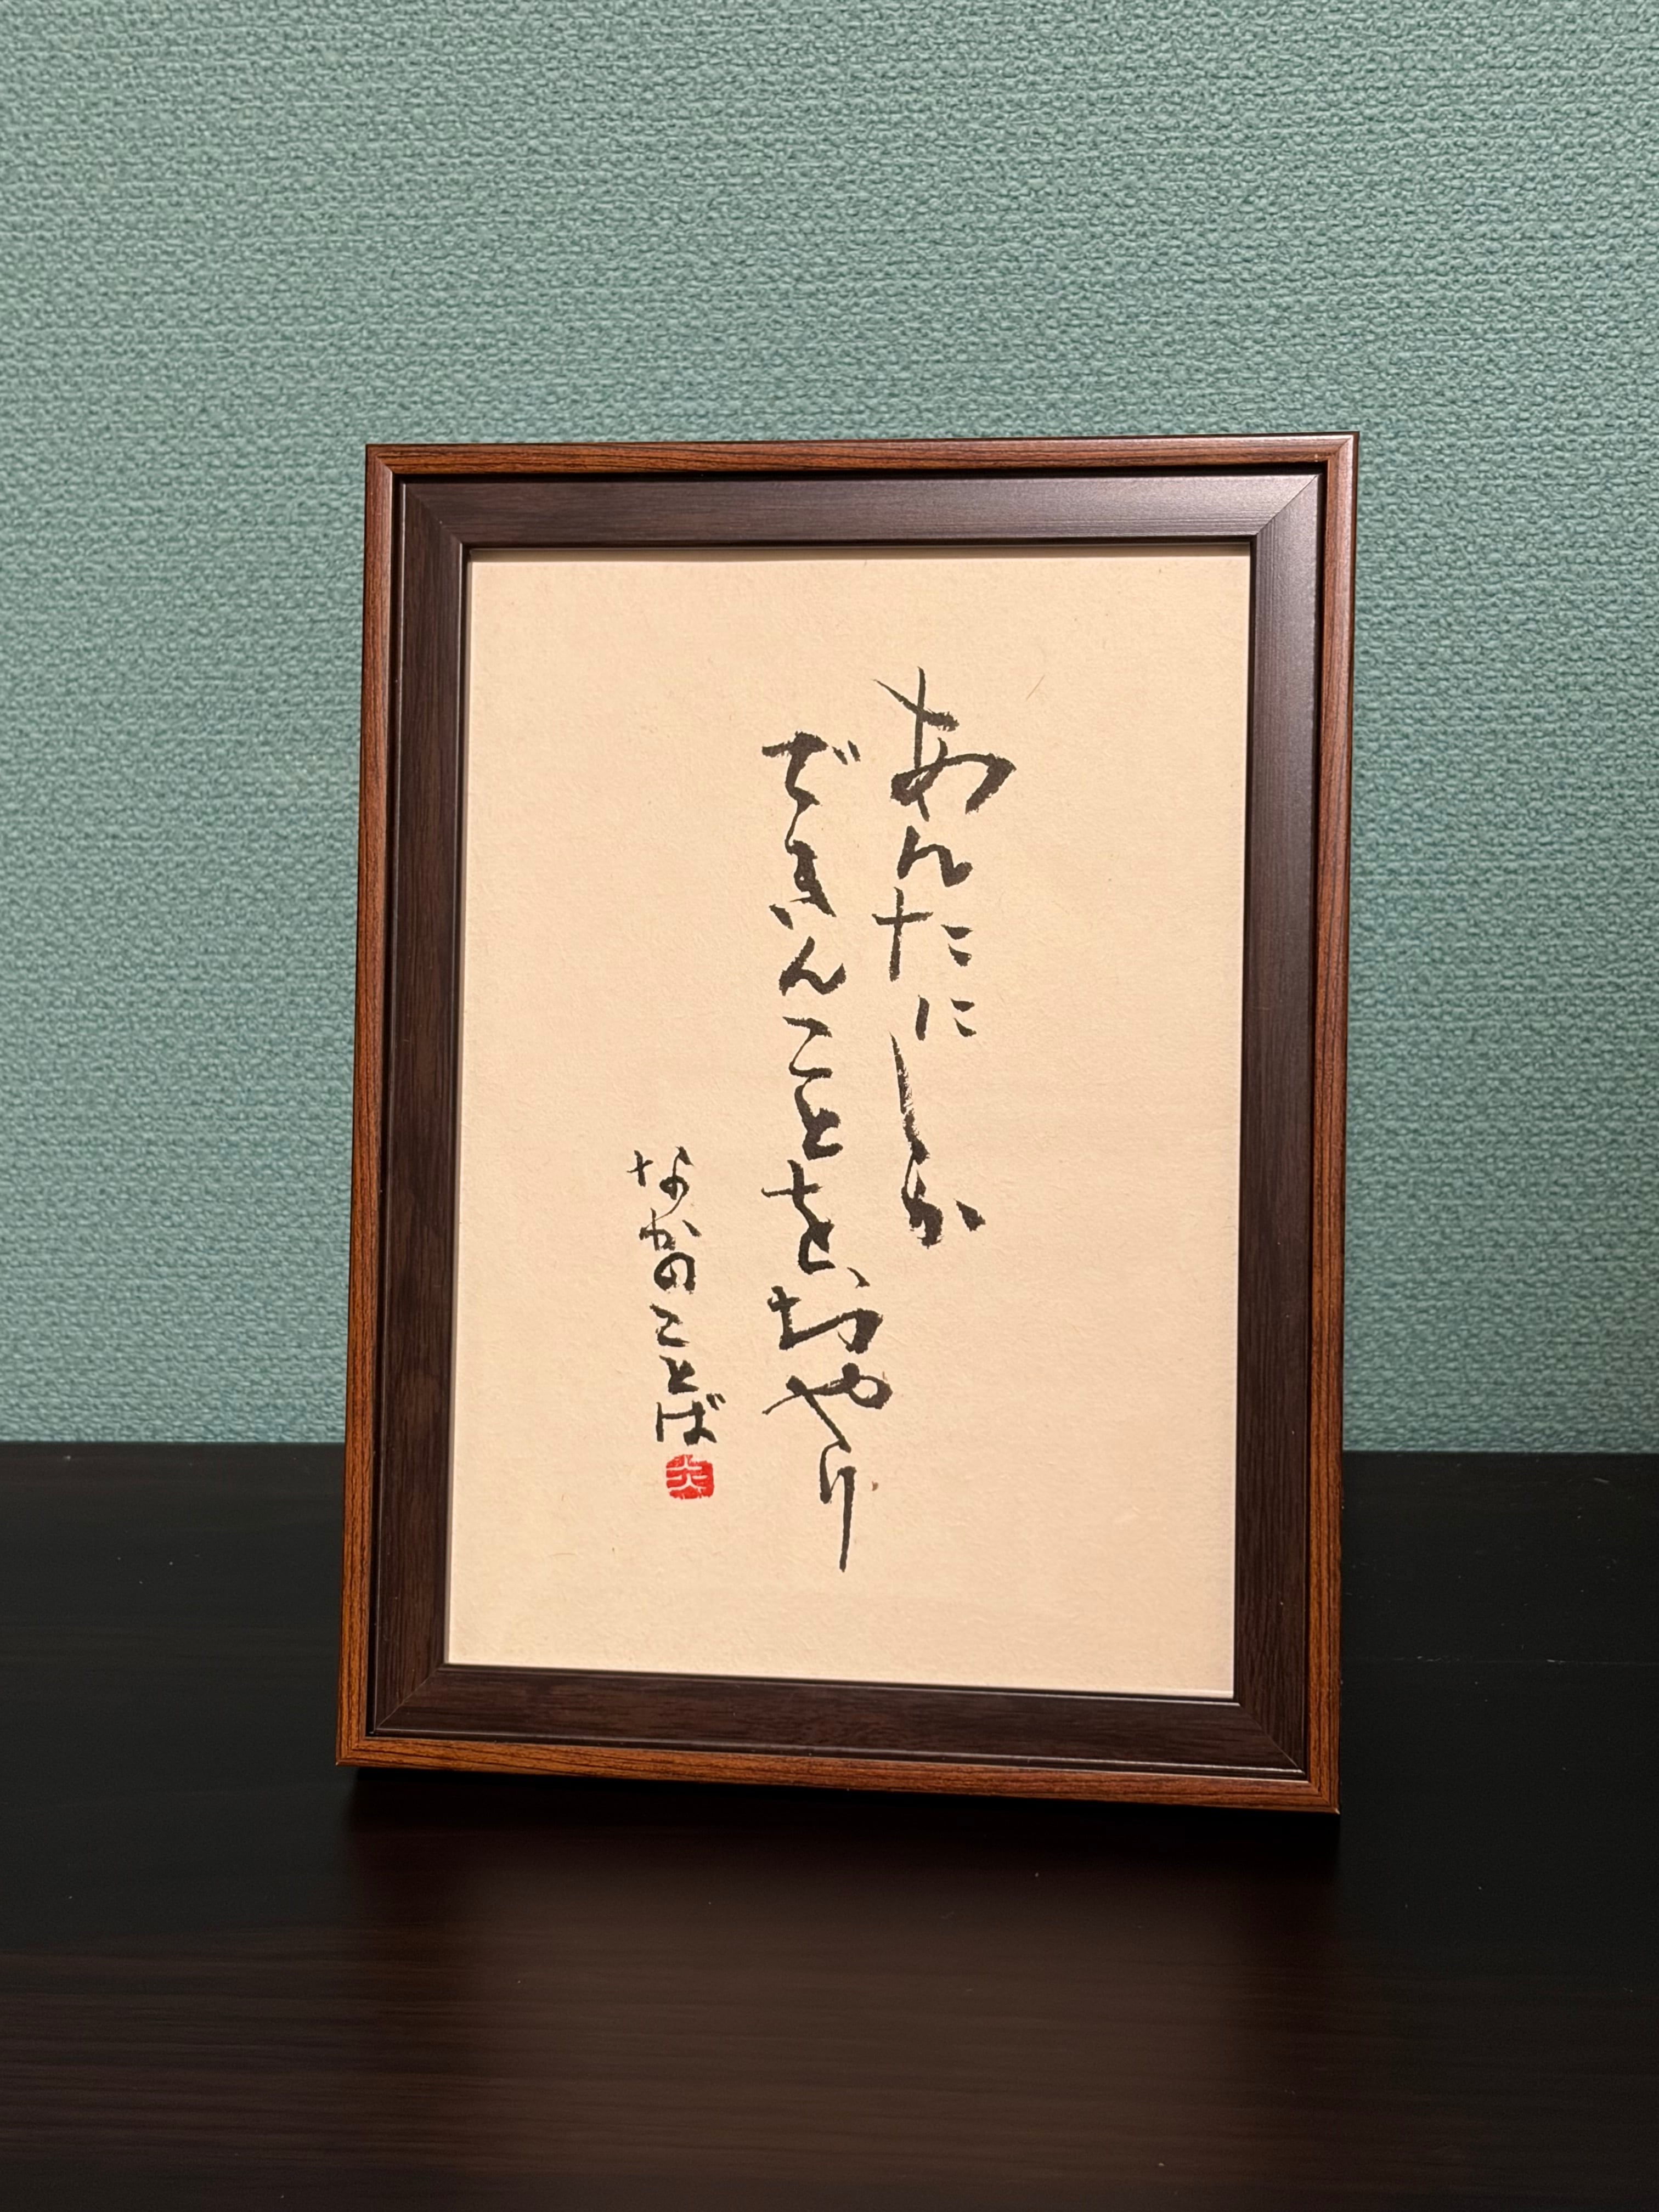 あんたにしか
できんことをおやり
なかのことば